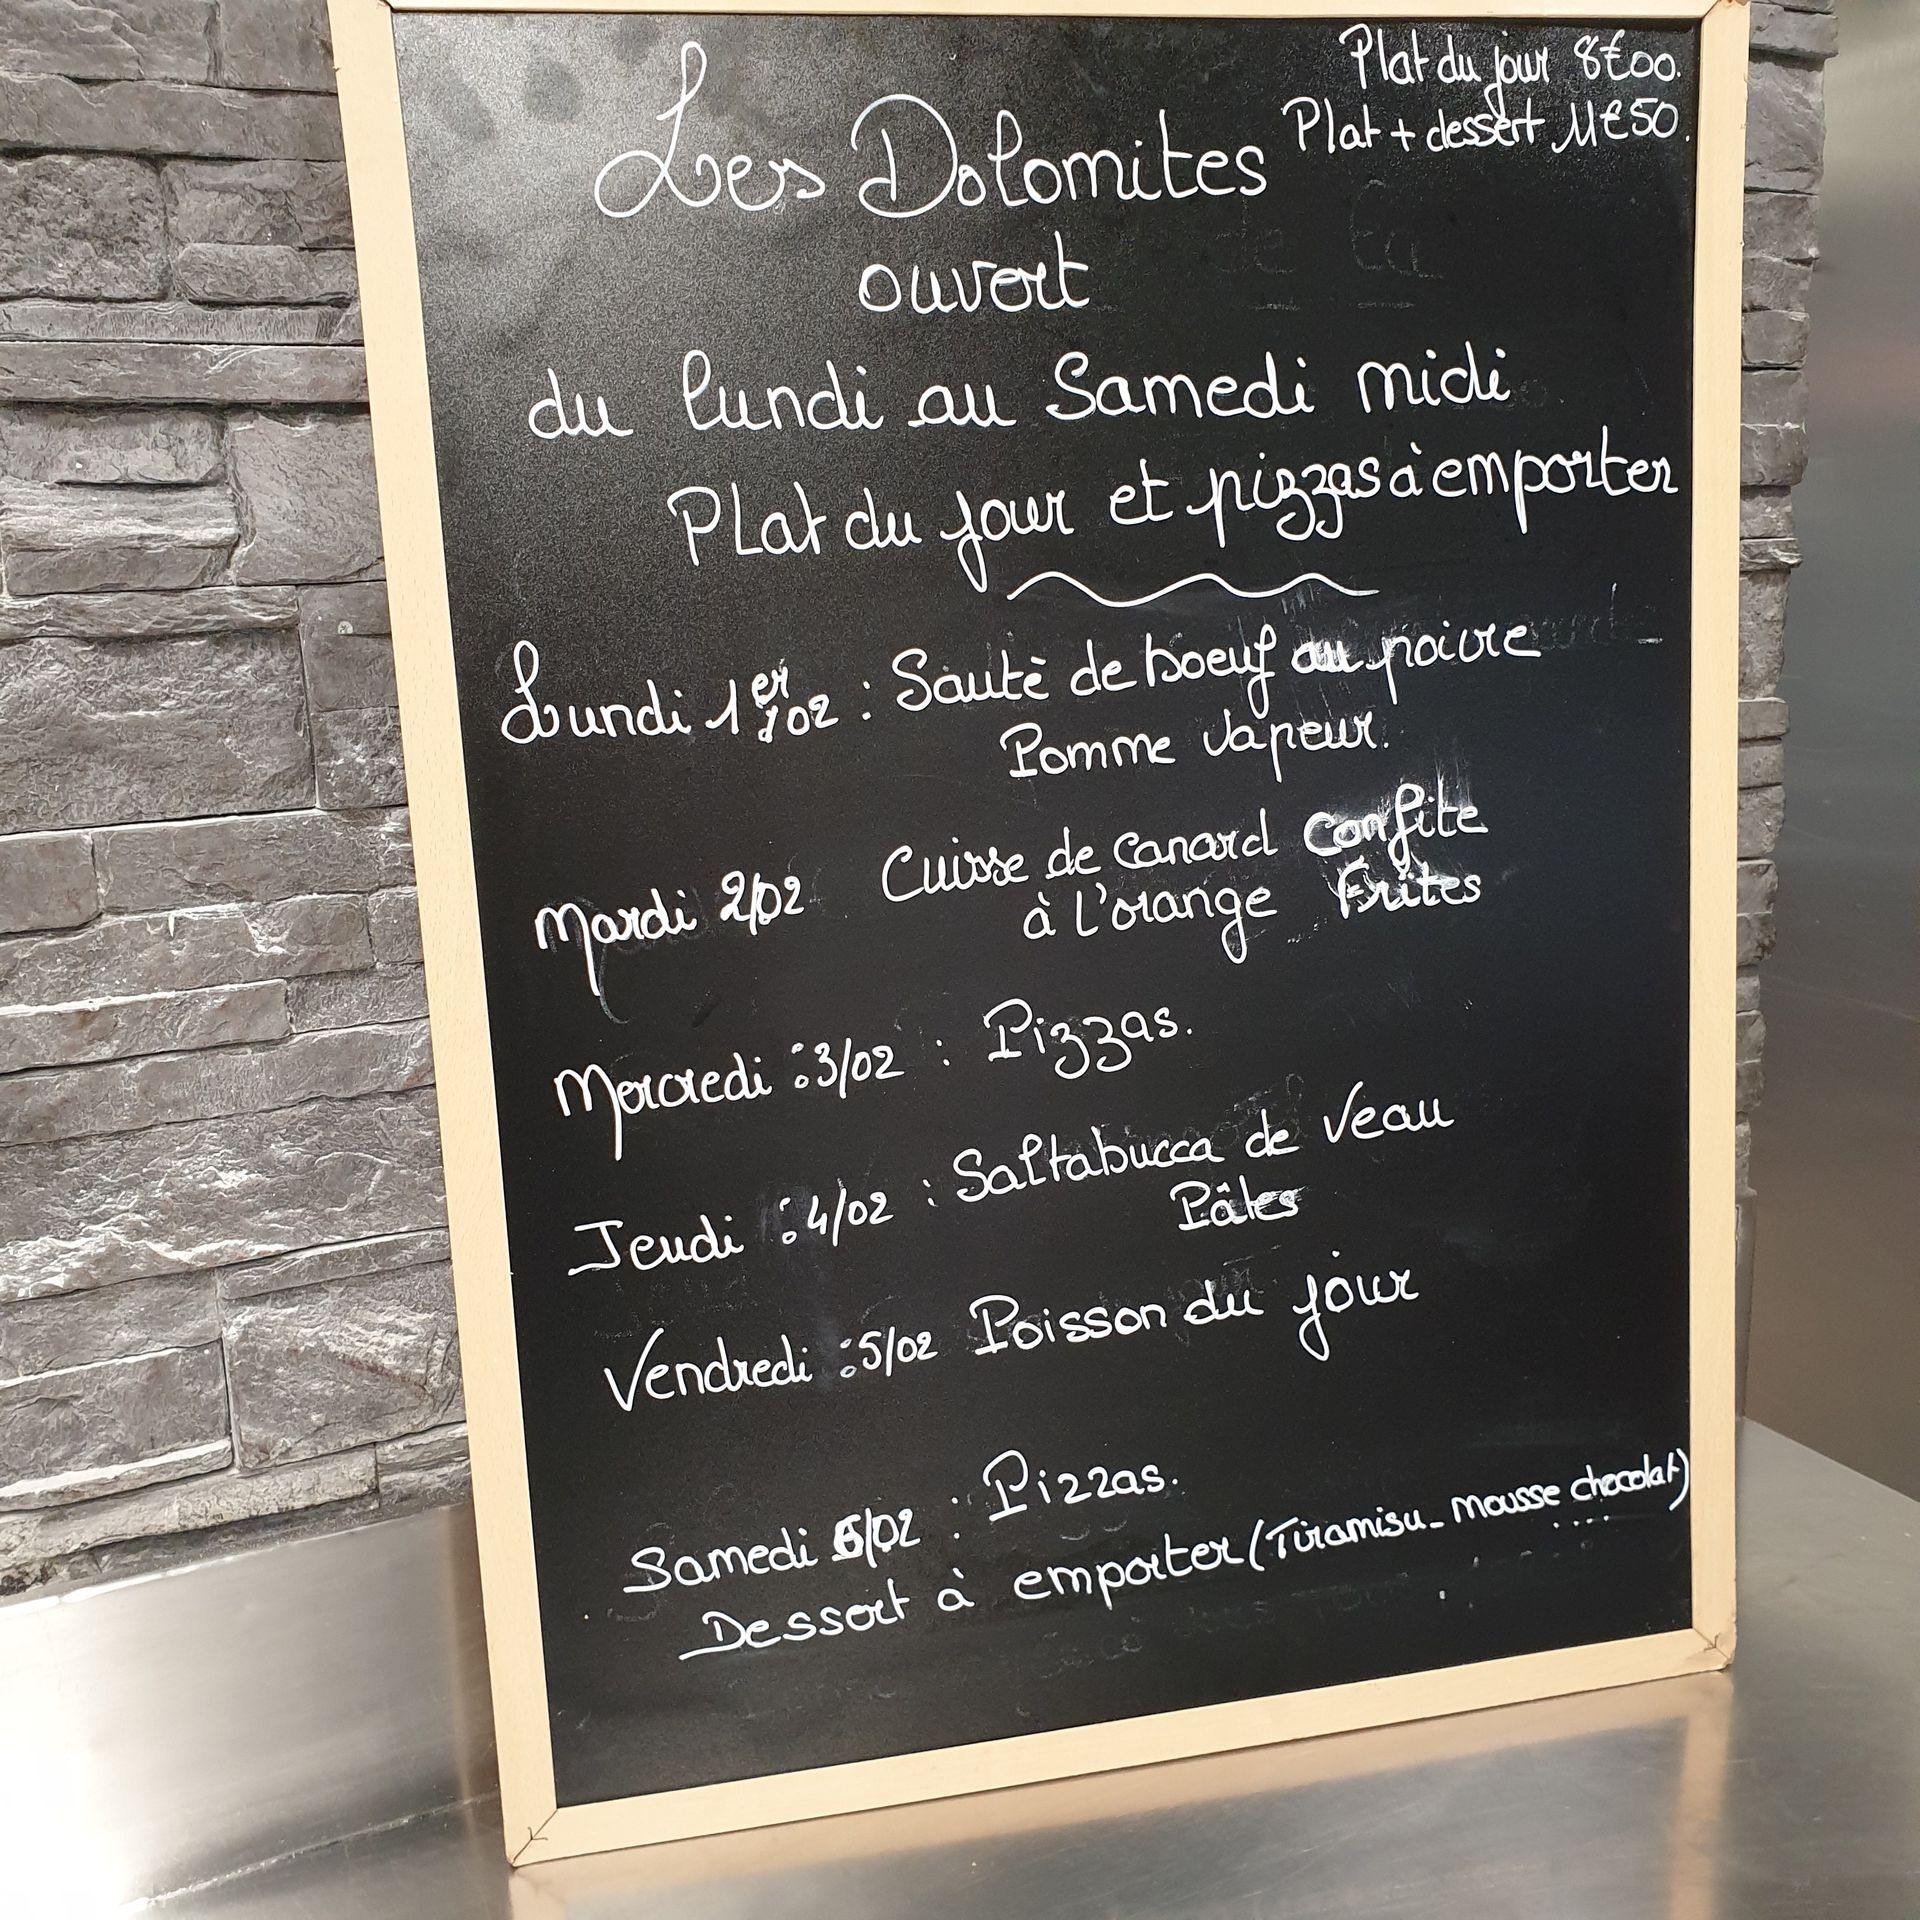 Plat du jour 8€00.
Plat + dessert 11€50.
Les Dolomites
ouvert
du lundi au Samedi midi
PLat du jour et pizzas à emporter
Lundi 1er/02 : Sautè de boeuf au poivre
Pomme vapeur.
Mardi 2/02 Cuisse de canard confite
à l'orange Frites
Mercredi : 3/02 : Pizzas.
Jeudi : 4/02 : Saltabucca de Veau
Pâtes
Vendredi : 5/02 Poisson du jour
Samedi 6/02 : Pizzas.
Dessert à emporter (Tiramisu - mousse chocolat)
....